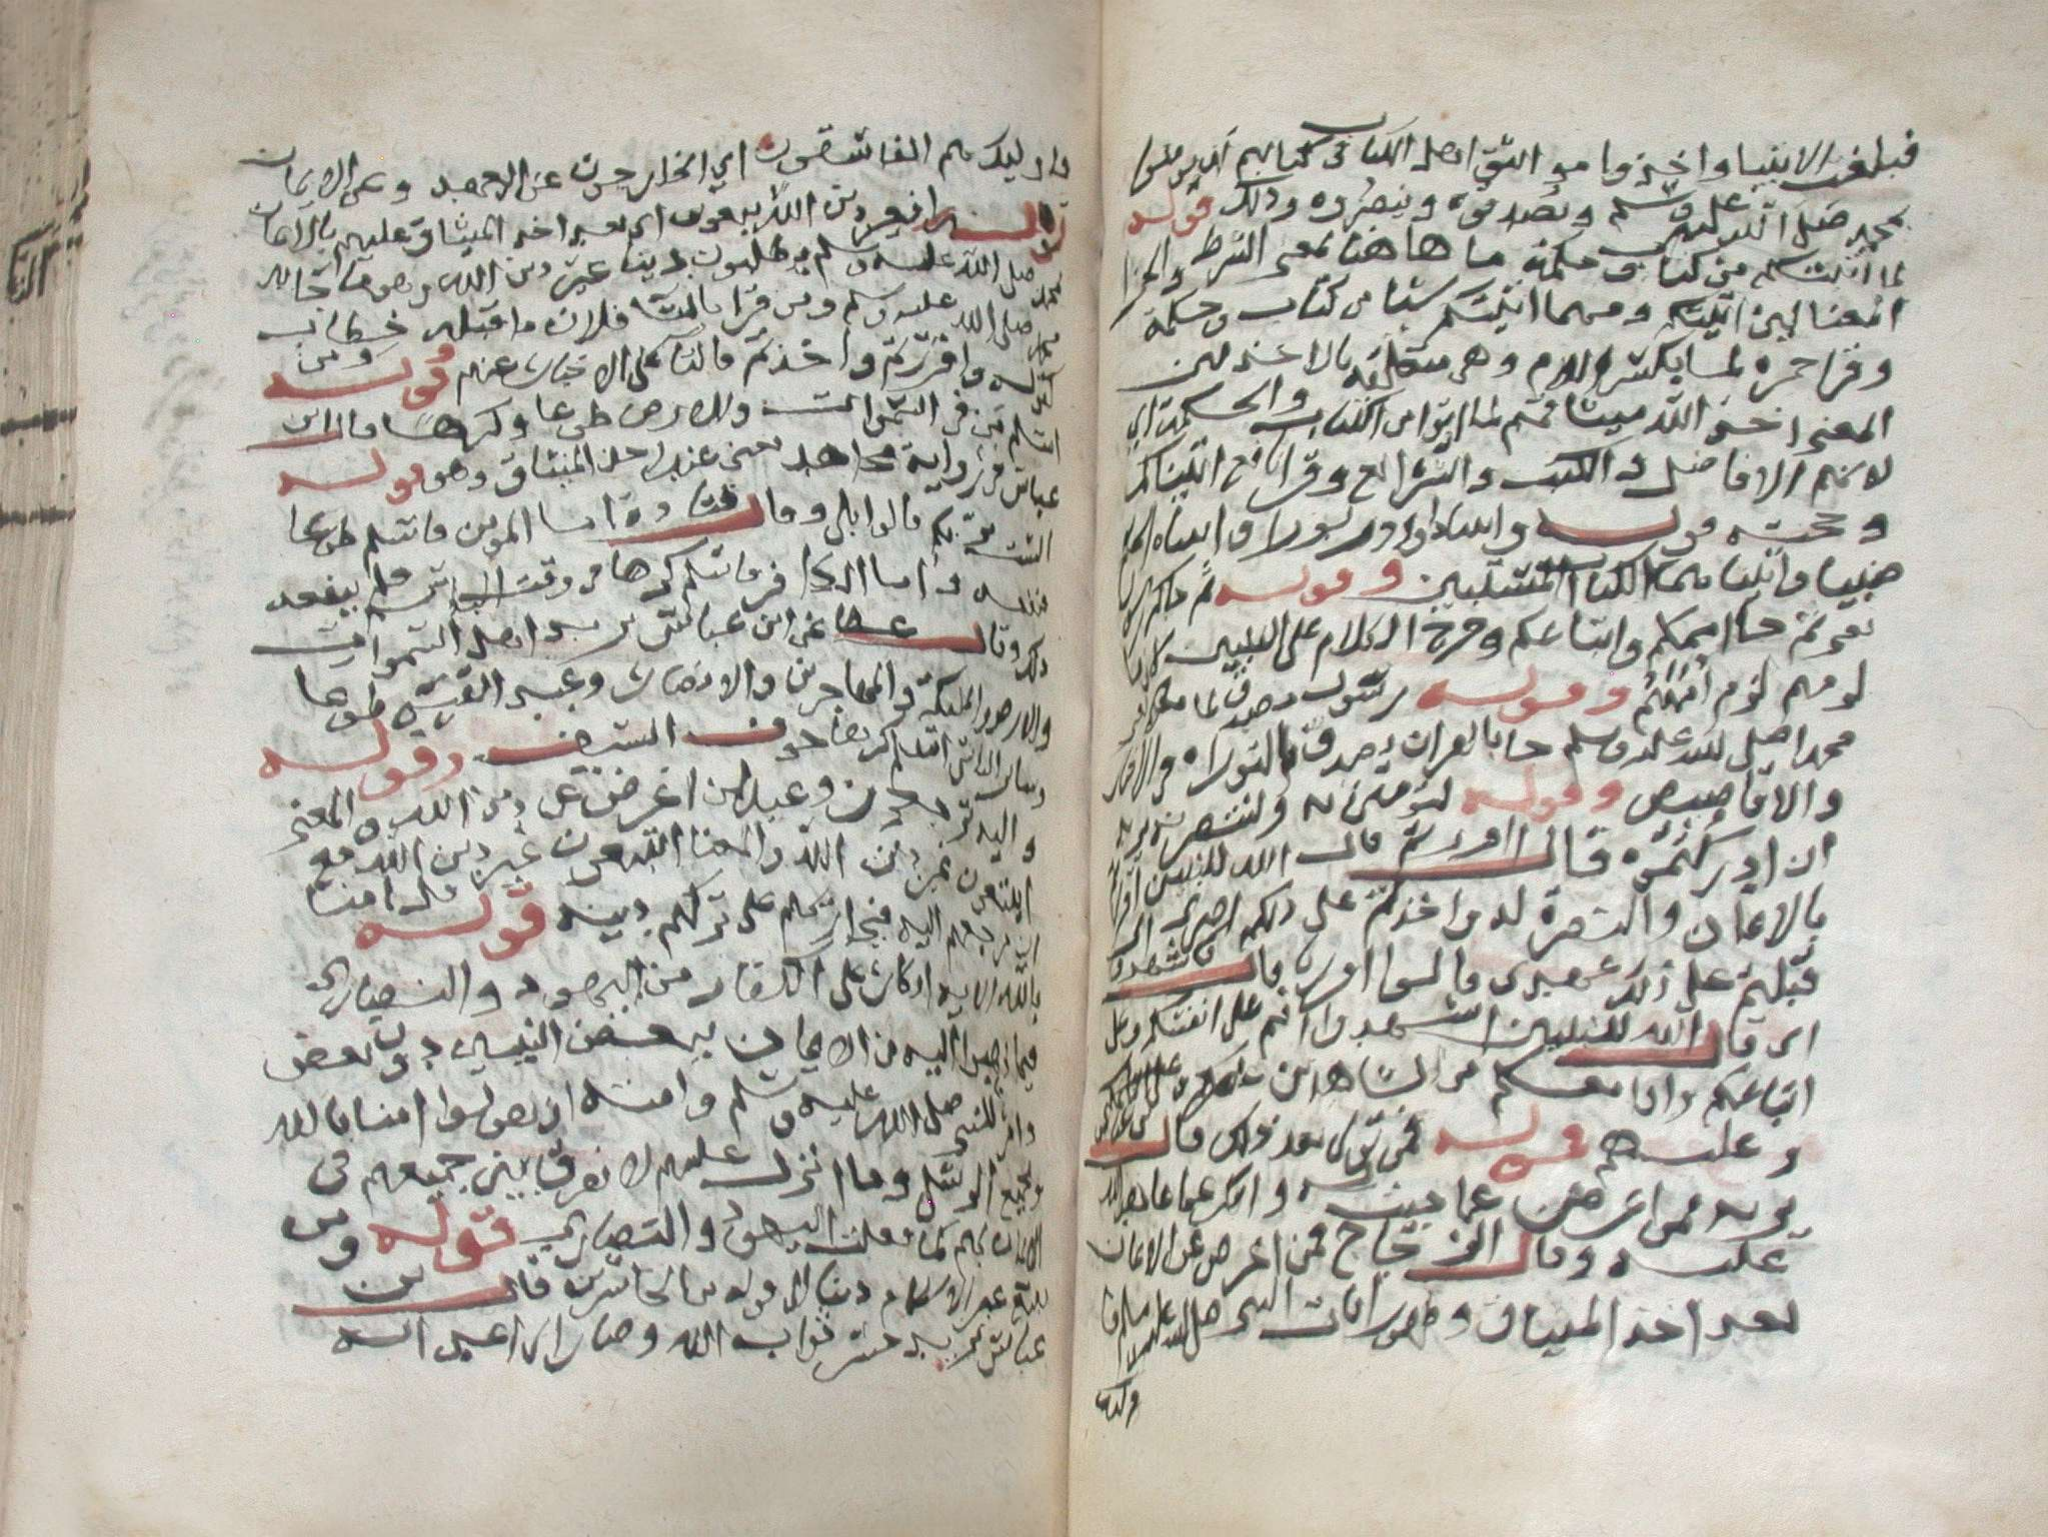 فبلغت الانبيا واخذوا مواثيق اهل الكتاب في كتابهم ان يومنوا
بمحمد صلى الله عليه وسلم ويصدقوه وينصروه وذلك قوله
لما اتيتكم من كتاب وحكمة ما هاهنا بمعنى الشرط والجزا
المعنا لين اتيتكم ومهما اتيتكم شيا من كتاب وحكمة
وقرا حمزه لما بكسر اللام وهي متعلقة بالاخذ لان
المعنى اخذ الله ميثاقهم لما اوتوا من الكتاب والحكمة اي
لانهم الافاضل والكتب والشرائع وقرا نافع اتيناكم
وحجته قوله واتينا داود زبورا واتيناه الحكم
صبيا واتيناهما الكتاب المستبين وقوله ثم جاكم رسول
يعني ثم جا اممكم واتباعكم وخرج الكلام على النبيين لان
لومهم لوم اممهم وقوله رسول مصدق لما معكم
محمدا صلى الله عليه وسلم جا بالقران يصدق بالتوراه في الاخبار
والاقاصيص وقوله لتومنن به ولتنصرنه يريد
ان ادركتموه قال ااقررتم قال الله للنبيين اقررتم
بالايمان والنصرة له واخذتم على ذلكم اصري اي
قبلتم على ذلك عهدي قالوا اقررنا قال فاشهدوا
اي قال الله للنبيين اشهدوا انتم على انفسكم وعلى
اتباعكم وانا معكم من الشاهدين عليكم
وعليهم قوله فمن تولى بعد ذلك قال
يريد فمن اعرض عما جيت به وانكر ما عاهد الله
عليه وقال الزجاج فمن اعرض عن الايمان
بعد اخذ الميثاق وظهور ايات النبي صلى الله عليه وسلم
فاوليك
فاوليك هم الفاسقون اي الخارجون عن العهد وعن الايمان
قوله افغير دين الله يبغون اي بعد اخذ الميثاق عليهم بالايمان
بمحمد صلى الله عليه وسلم يطلبون دينا غير دين الله وهو ما جا به
محمد صلى الله عليه وسلم ومن قرا بالتا فلان ما قبله خطاب
كقوله ااقررتم واخذتم والتا على الاخبار عنهم وقوله وله
اسلم من في السموات والارض طوعا وكرها قال ابن
عباس في رواية مجاهد يعني عند اخذ الميثاق وهو قوله
الست بربكم قالوا بلى وقال قتادة اما المومن فاسلم طوعا
فنفعه واما الكافر فاسلم كرها في وقت الباس فلم ينفعه
ذلك وقال عطا عن ابن عباس يريد اهل السموات
والارض والمليكة والمهاجرين والانصار وعبد القيس طوعا
وساير الناس اسلموا كرها خوف السيف وقوله
واليه ترجعون وعيد لمن اعرض عن دين الله والمعنى
ايبتغون غير دين الله والمعنا ايبتغون غير دين الله مع
ان مرجعهم اليه فيجازيهم على تركهم دينه قوله قل امنا
بالله الايه انكار على الكفار من اليهود والنصارى
فيما ذهبوا اليه من الايمان ببعض النبيين دون بعض
وامر للنبي صلى الله عليه وسلم وامته ان يقولوا امنا بالله
وبجميع الرسل وما انزل عليهم لا نفرق بين جميعهم في
الايمان بهم كما فعلت اليهود والنصارى قوله ومن
يبتغ غير الاسلام دينا الى قوله من الخاسرين قال ابن
عباس يريد خسر ثواب الله وصار الى عذاب الله